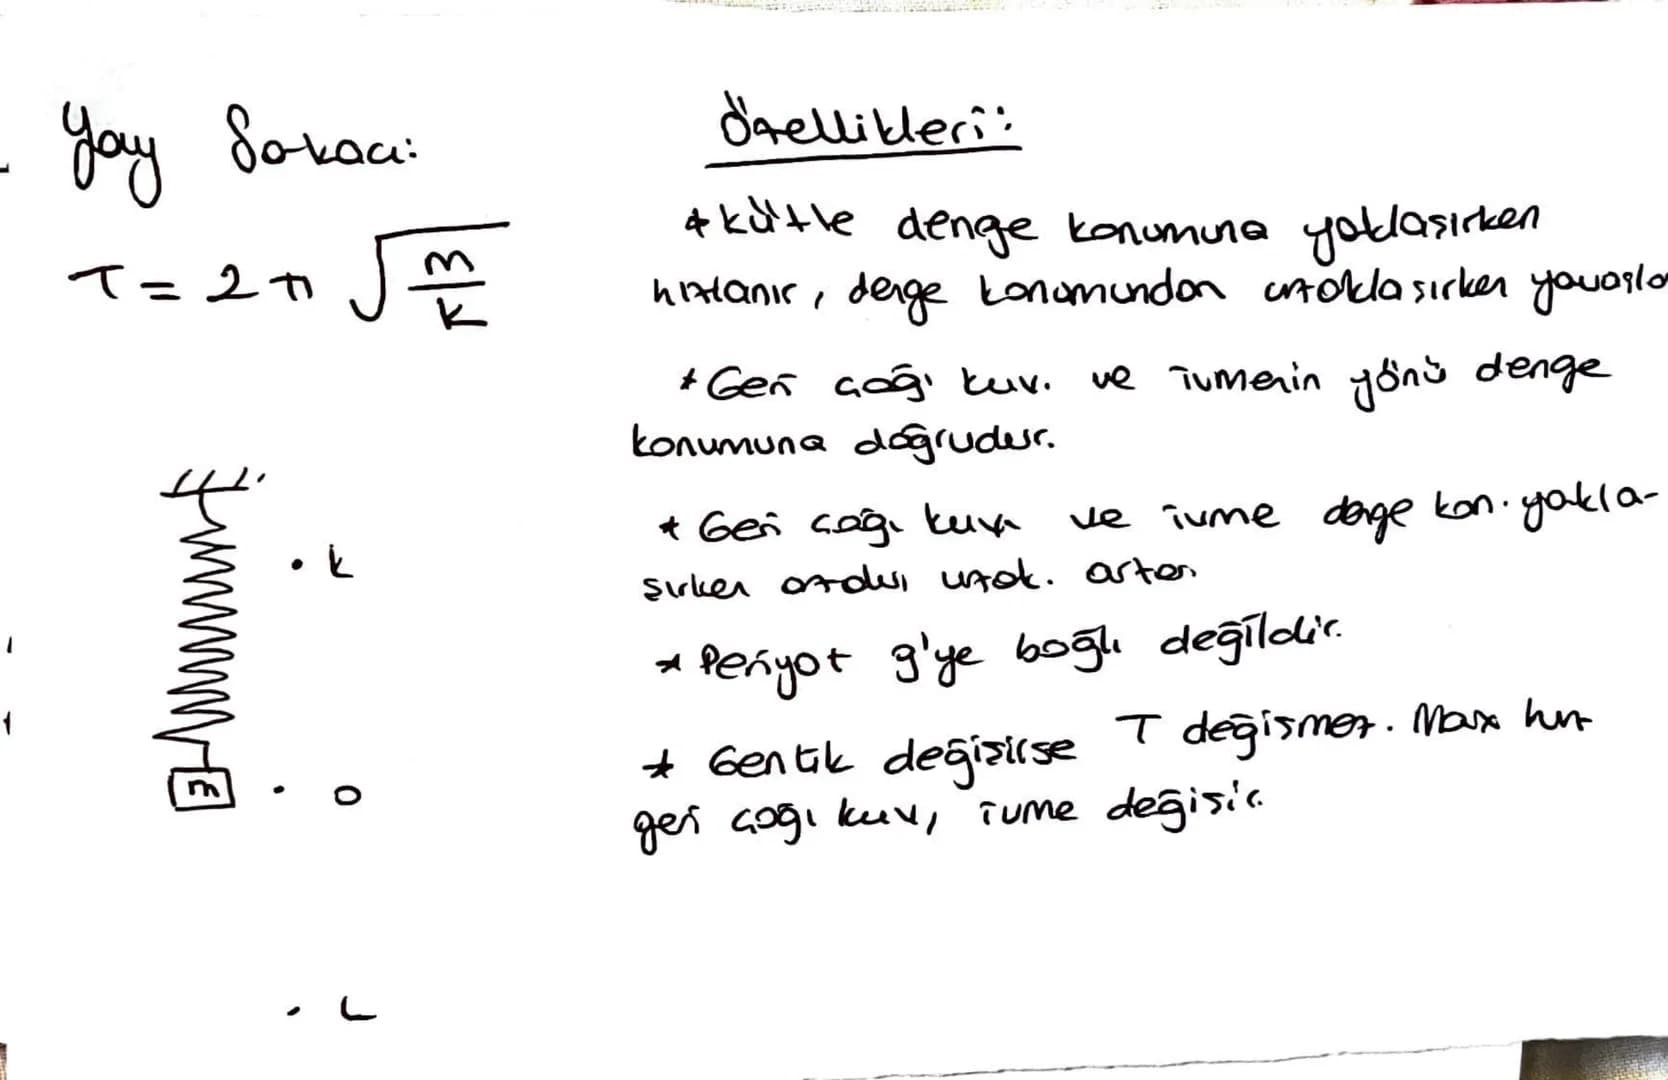 Yay Sarkacı:
T = 2π √m/k
k
m
O
L
Özellikleri:
* Kütle denge konumuna yaklaşırken
hızlanır, denge konumundan uzaklaşırken yavaşla
* Geri çağı kuv. ve ivmenin yönü denge
konumuna doğrudur.
* Geri çağı kuv ve ivme denge kon. yakla-
şırken azalır, uzak. artar
* Periyot g'ye bağlı değildir.
* Genlik değişirse T değişmez. Max hız
geri çağı kuv, ivme değişir.